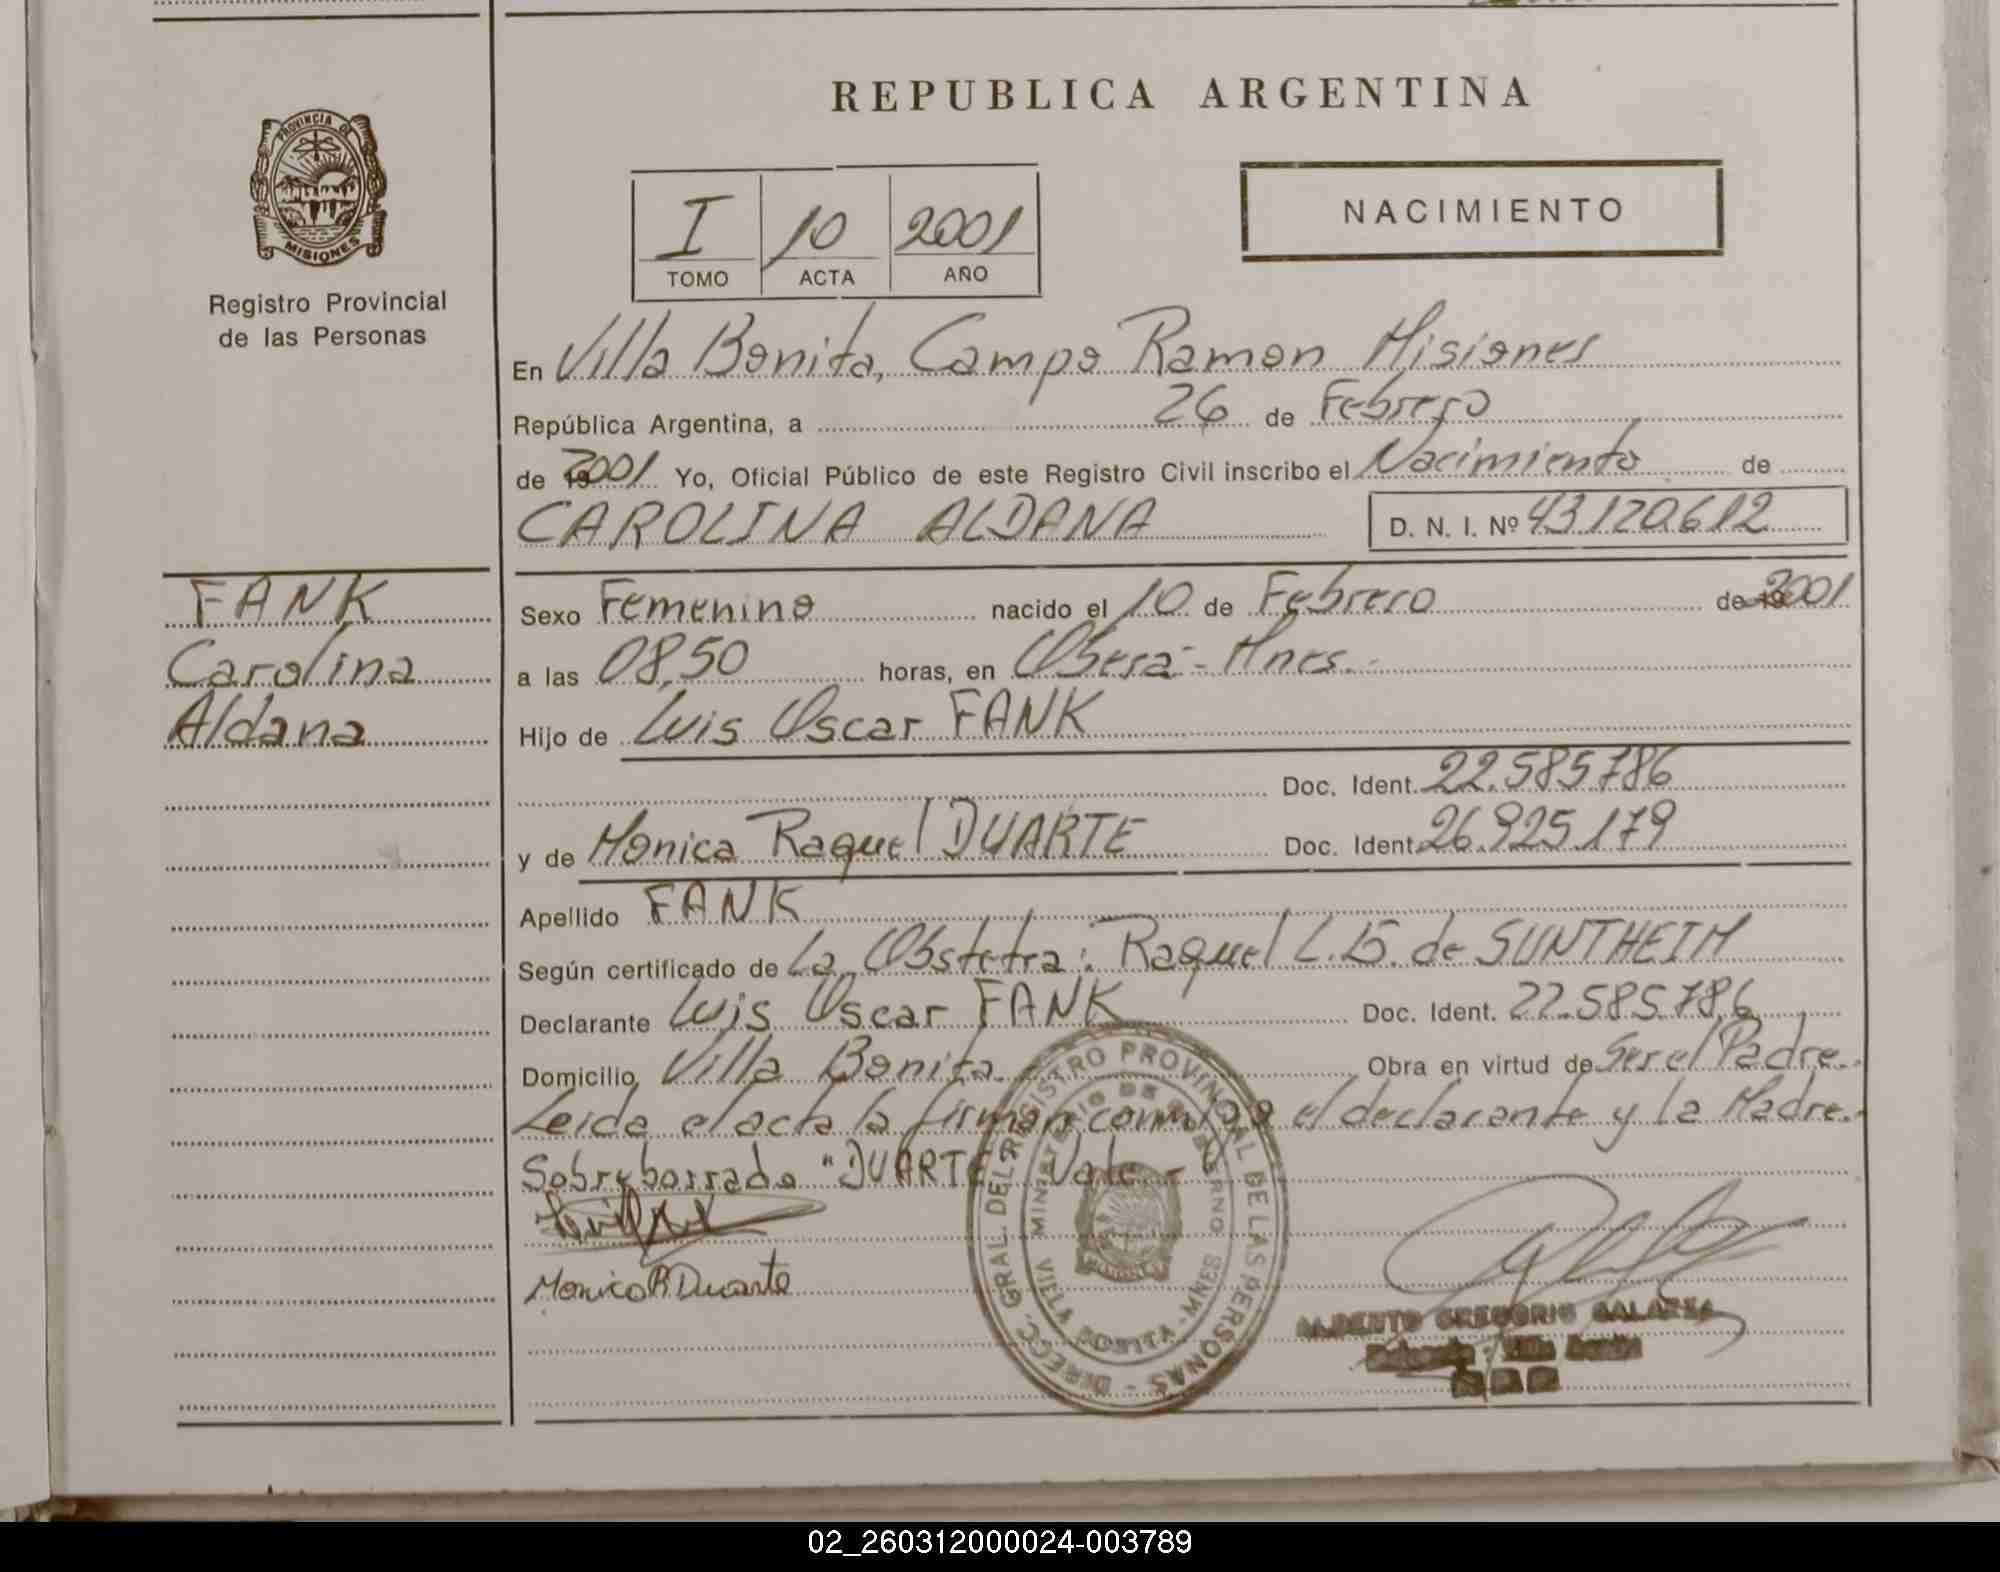 REPUBLICA ARGENTINA
PROVINCIA DE
MISIONES
Registro Provincial
de las Personas
I 10 2001
TOMO ACTA AÑO
NACIMIENTO
En Villa Bonita, Campo Ramon Misiones
República Argentina, a 26 de Febrero
de 2001 Yo, Oficial Público de este Registro Civil inscribo el Nacimiento de
CAROLINA ALDANA D. N. I. Nº 43.120.612
FANK
Carolina
Aldana
Sexo Femenino nacido el 10 de Febrero de 2001
a las 08,50 horas, en Oberá - Mnes.-
Hijo de Luis Oscar FANK
Doc. Ident. 22.585.786
y de Monica Raquel DUARTE Doc. Ident. 26.925.179
Apellido FANK
Según certificado de La Obstetra: Raquel L. de SUNTHEIM
Declarante Luis Oscar FANK Doc. Ident. 22.585.786
Domicilio Villa Bonita Obra en virtud de Ser el Padre.-
Leida el acta la firman conmigo el declarante y la Madre.-
Sobreborrado "DUARTE" Vale.-
Monica R Duarte
DIREC. GRAL. DEL REGISTRO PROVINCIAL DE LAS PERSONAS -
MINISTERIO DE GOBIERNO
VILLA BONITA - MNES
ALBERTO GREGORIO GALARZA
02_260312000024-003789